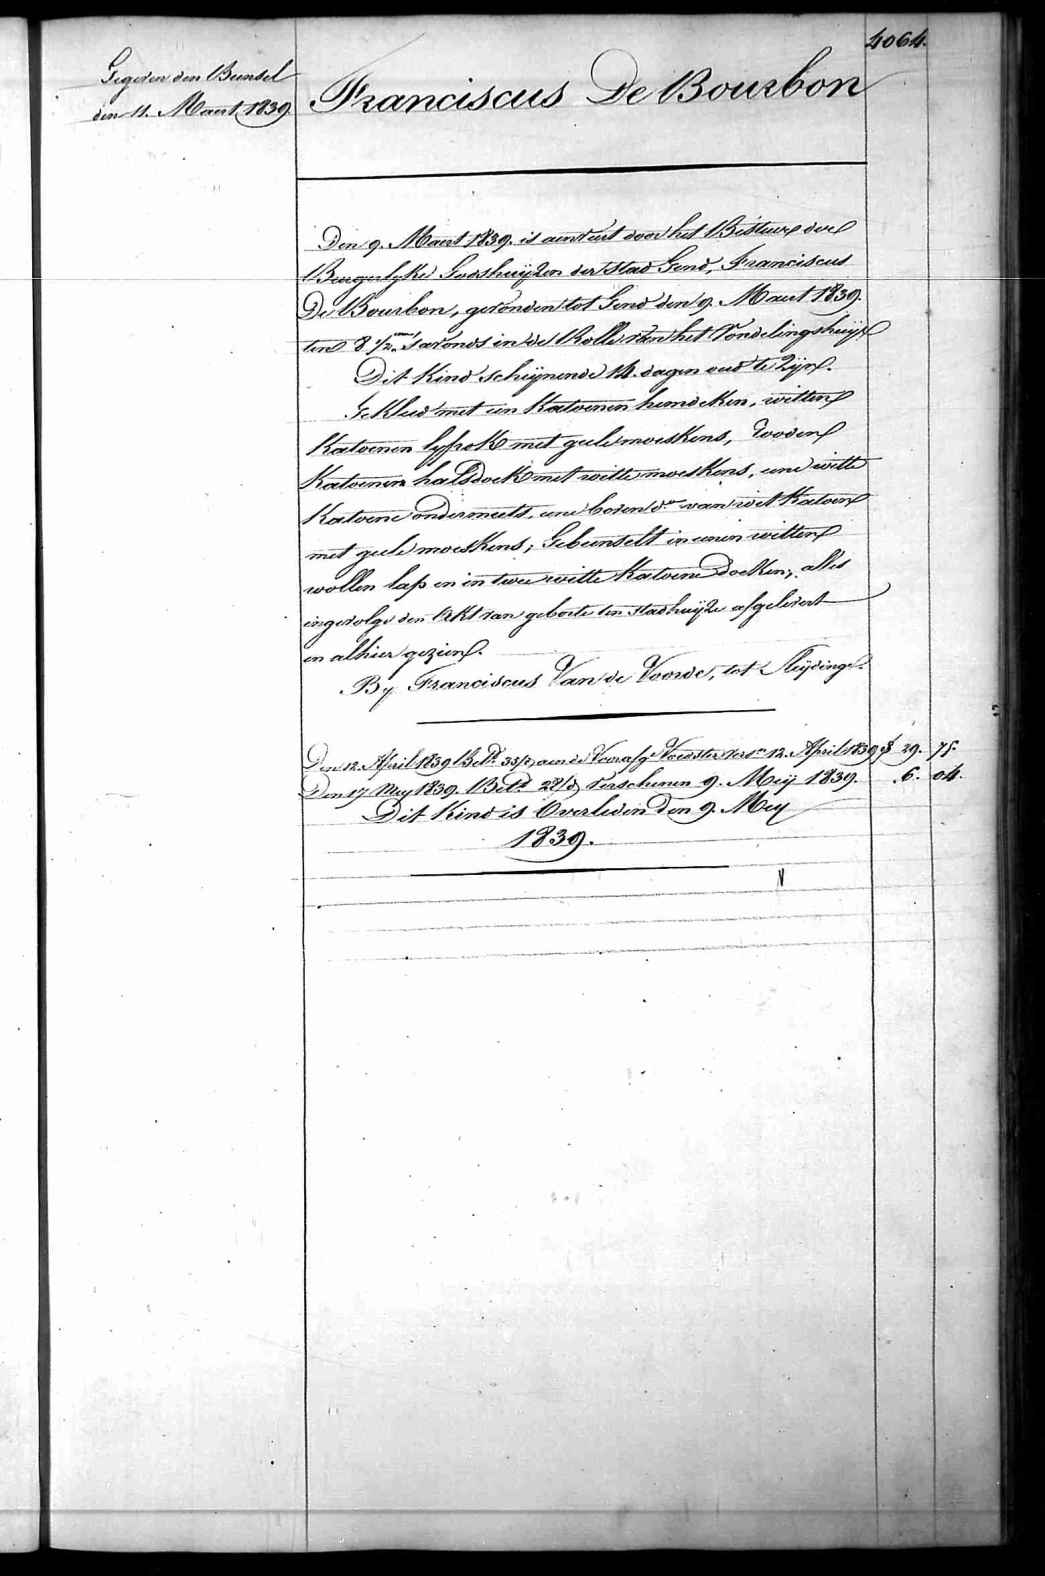 4064.
Gegeven den Bunsel
den 11. Maert 1839.
Franciscus De Bourbon
Den 9. Maert 1839. is aenveirt door het Bestuur der
Burgerlyke Godshuijzen der stad Gend, Franciscus
De Bourbon, gevonden tot Gend den 9. Maert 1839.
ten 8 1/2 uren 's avonds in de Rolle van het Vondelingshuijs
Dit Kind scheijnende 14. dagen oud te Zijn.
Gekleed met een Katoenen hemdeken, witten
Katoenen lyfrok met geele moeskens, Rooden
Katoenen halsdoek met witte moeskens, eene witte
Katoene ondermuts, eene boven d.o van wit Katoen
met geele moeskens; Gebunselt in eenen witten
wollen lap en in twee witte Katoene Doeken; alles
ingevolge den Akt van geborte ten stadhuijze afgelevert
en alhier gezien.
By Franciscus Van de Voorde, tot Sleijdinge.
Den 12. April 1839 Bet.d 35/d aen de Voorafg.e Voedster vers.n 12. April 1839 f 29. 75.
Den 17 Mey 1839. Bet.d 28/d Verschenen 9. Meÿ 1839. 6. 04.
Dit Kind is Overleden Den 9. Mey
1839.